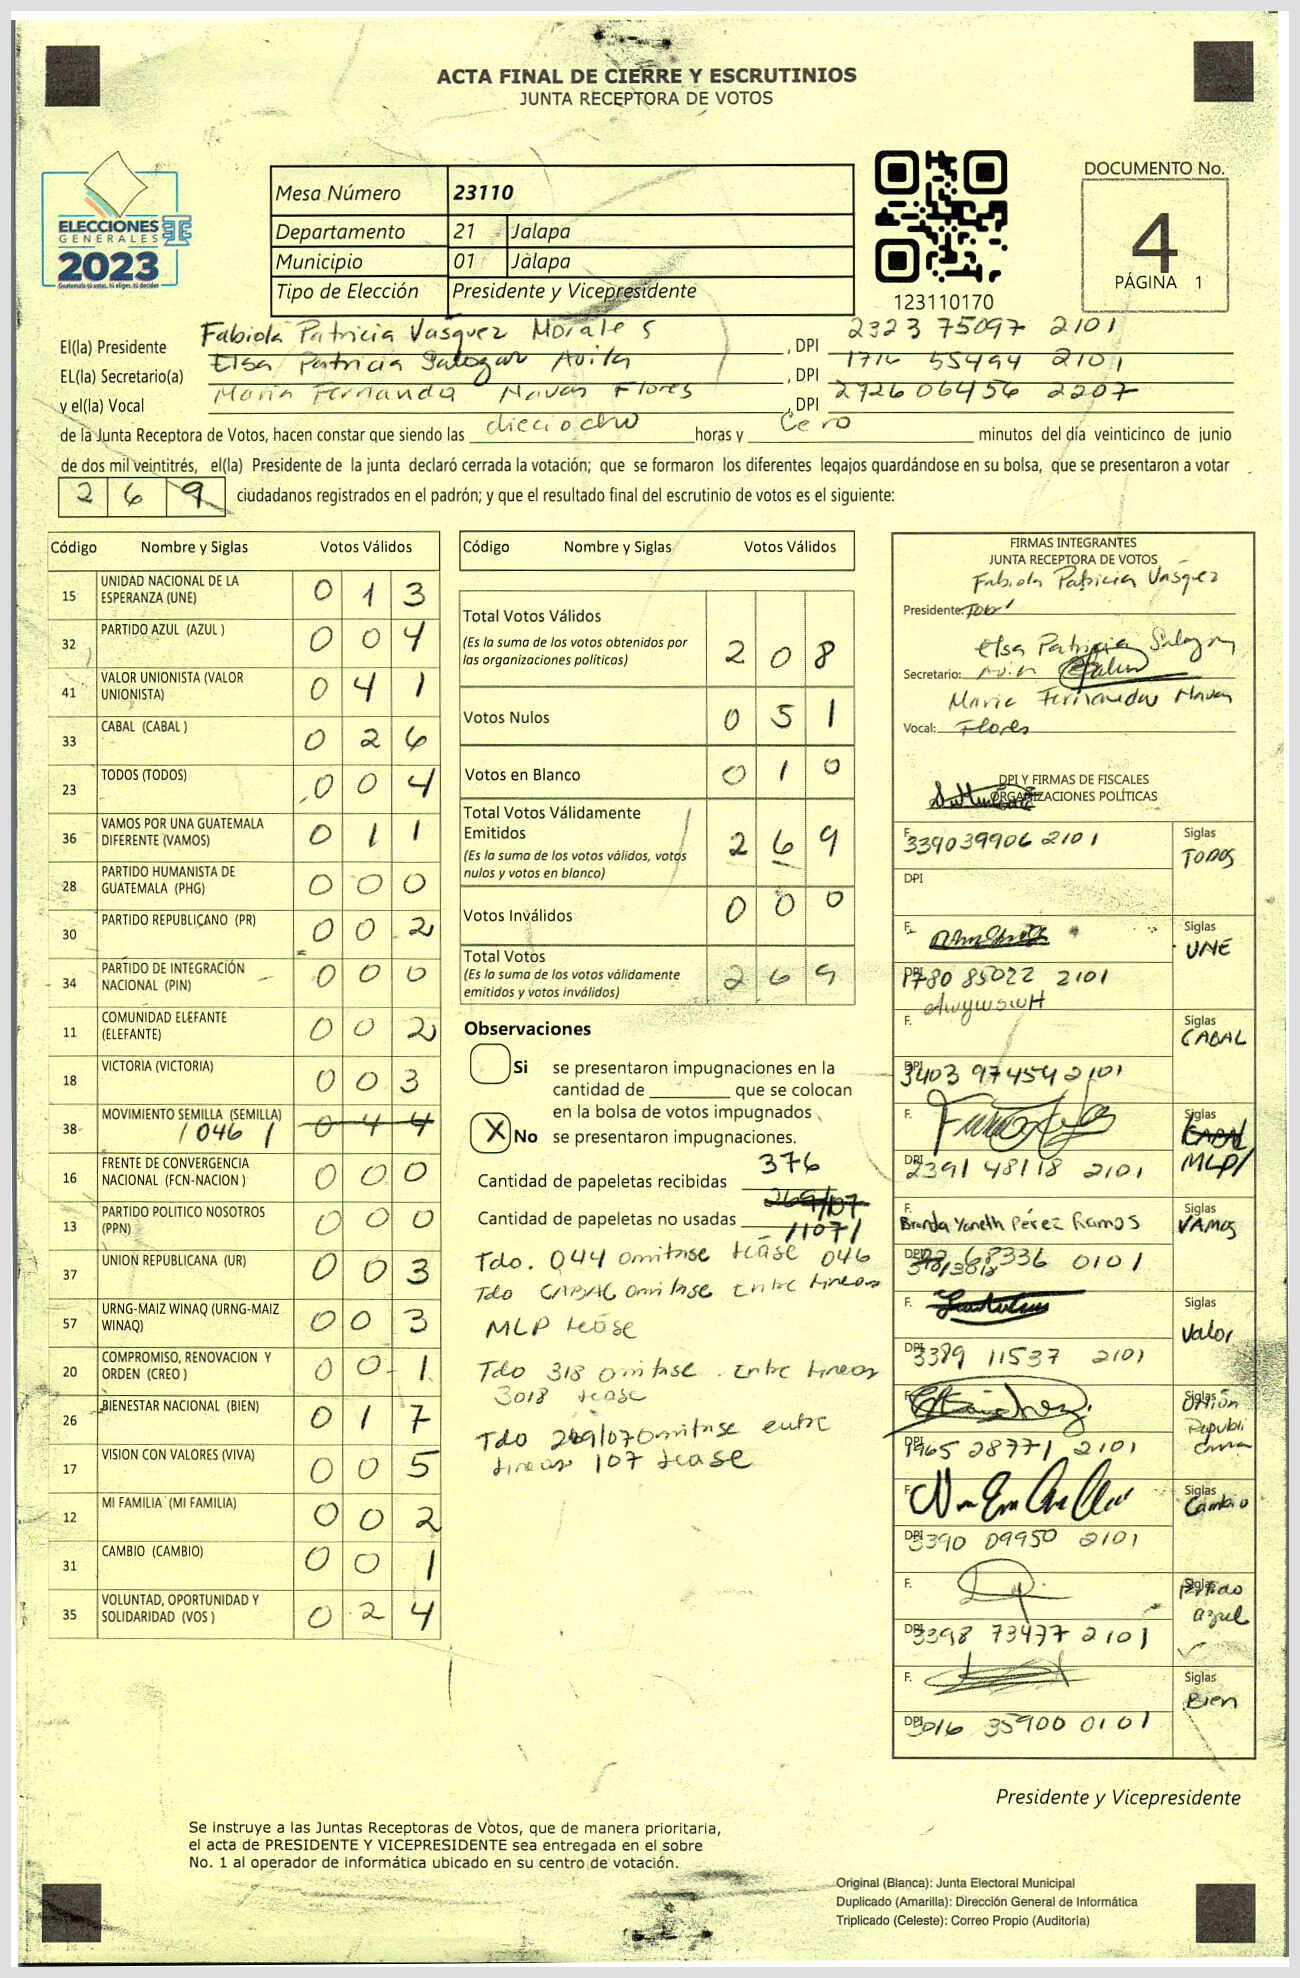 ACTA FINAL DE CIERRE Y ESCRUTINIOS
JUNTA RECEPTORA DE VOTOS
ELECCIONES
GENERALES
2023
Guatemala tú votas, tú eliges, tú decides
Mesa Número 23110
Departamento 21 Jalapa
Municipio 01 Jalapa
Tipo de Elección Presidente y Vicepresidente
123110170
DOCUMENTO No.
4
PÁGINA 1
El(la) Presidente Fabiola Patricia Vásquez Morales , DPI 2323 75097 2101
EL(la) Secretario(a) Elsa Patricia Salazar Avila , DPI 1716 55494 2101
y el(la) Vocal Maria Fernanda Navas Flores , DPI 2726 06456 2207
de la Junta Receptora de Votos, hacen constar que siendo las dieciocho horas y Cero minutos del día veinticinco de junio
de dos mil veintitrés, el(la) Presidente de la junta declaró cerrada la votación; que se formaron los diferentes legajos guardándose en su bolsa, que se presentaron a votar
2 6 9 ciudadanos registrados en el padrón; y que el resultado final del escrutinio de votos es el siguiente:
Código Nombre y Siglas Votos Válidos
15 UNIDAD NACIONAL DE LA ESPERANZA (UNE) 0 1 3
32 PARTIDO AZUL (AZUL ) 0 0 4
41 VALOR UNIONISTA (VALOR UNIONISTA) 0 4 1
33 CABAL (CABAL ) 0 2 6
23 TODOS (TODOS) 0 0 4
36 VAMOS POR UNA GUATEMALA DIFERENTE (VAMOS) 0 1 1
28 PARTIDO HUMANISTA DE GUATEMALA (PHG) 0 0 0
30 PARTIDO REPUBLICANO (PR) 0 0 2
34 PARTIDO DE INTEGRACIÓN NACIONAL (PIN) 0 0 0
11 COMUNIDAD ELEFANTE (ELEFANTE) 0 0 2
18 VICTORIA (VICTORIA) 0 0 3
38 MOVIMIENTO SEMILLA (SEMILLA) 0 4 4
/ 046 /
16 FRENTE DE CONVERGENCIA NACIONAL (FCN-NACION ) 0 0 0
13 PARTIDO POLITICO NOSOTROS (PPN) 0 0 0
37 UNION REPUBLICANA (UR) 0 0 3
57 URNG-MAIZ WINAQ (URNG-MAIZ WINAQ) 0 0 3
20 COMPROMISO, RENOVACION Y ORDEN (CREO ) 0 0 1
26 BIENESTAR NACIONAL (BIEN) 0 1 7
17 VISION CON VALORES (VIVA) 0 0 5
12 MI FAMILIA (MI FAMILIA) 0 0 2
31 CAMBIO (CAMBIO) 0 0 1
35 VOLUNTAD, OPORTUNIDAD Y SOLIDARIDAD (VOS ) 0 2 4
Código Nombre y Siglas Votos Válidos
Total Votos Válidos
(Es la suma de los votos obtenidos por las organizaciones políticas) 2 0 8
Votos Nulos 0 5 1
Votos en Blanco 0 1 0
Total Votos Válidamente Emitidos
(Es la suma de los votos válidos, votos nulos y votos en blanco) 2 6 9
Votos Inválidos 0 0 0
Total Votos
(Es la suma de los votos válidamente emitidos y votos inválidos) 2 6 9
Observaciones
Si se presentaron impugnaciones en la
cantidad de ________ que se colocan
en la bolsa de votos impugnados
X No se presentaron impugnaciones.
Cantidad de papeletas recibidas 376
269/107
Cantidad de papeletas no usadas /107/
Tdo. 044 omitase lease 046
Tdo CABAL omitase entre lineas
MLP lease
Tdo 318 omitase. entre lineas
3018 lease
Tdo 269/070mitase entre
lineas 107 lease
FIRMAS INTEGRANTES
JUNTA RECEPTORA DE VOTOS
Fabiola Patricia Vásquez
Presidente:
Elsa Patricia Salazar
Secretario: Avila
Maria Fernanda Navas
Vocal: Flores
DPI Y FIRMAS DE FISCALES
ORGANIZACIONES POLÍTICAS
F. 339039906 2101 Siglas TODOS
DPI
F. Siglas UNE
DPI 1780 85022 2101
F. Siglas CABAL
DPI 3403 97454 2101
F. Siglas CABAL
DPI 2391 48118 2101 MLP/
F. Brenda Yaneth Pérez Ramos Siglas VAMOS
DPI 68336 0101
F. Siglas Valor
DPI 3389 11537 2101
F. Siglas Unión Republicana
DPI 1965 28771 2101
F. Siglas Cambio
DPI 3390 09950 2101
F. Siglas Partido azul
DPI 3398 73477 2101
F. Siglas Bien
DPI 3016 35900 0101
Presidente y Vicepresidente
Se instruye a las Juntas Receptoras de Votos, que de manera prioritaria,
el acta de PRESIDENTE Y VICEPRESIDENTE sea entregada en el sobre
No. 1 al operador de informática ubicado en su centro de votación.
Original (Blanca): Junta Electoral Municipal
Duplicado (Amarilla): Dirección General de Informática
Triplicado (Celeste): Correo Propio (Auditoría)